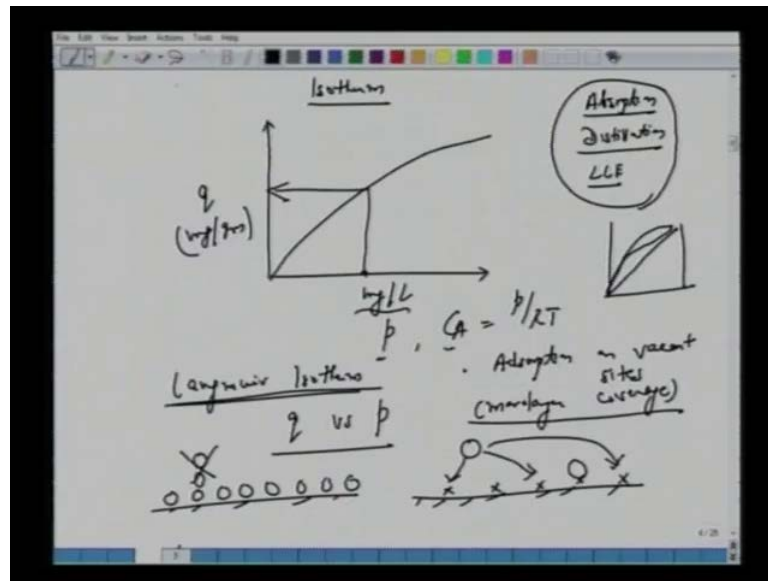 File Edit View Insert Actions Tools Help
Isotherm
Absorption
Distillation
LLE
q
(mg/gm)
mg/L
p , CA = p/RT
Langmuir Isotherm
. Adsorption on vacant
sites
(monolayer coverage)
q vs p
6/25